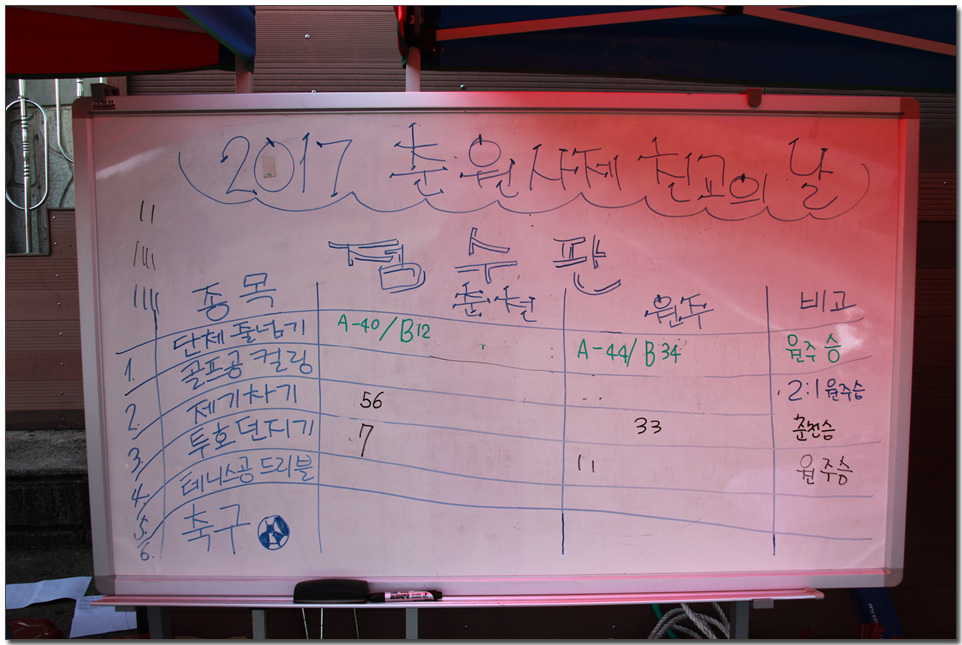 2017 춘·원 사제 친교의 날
점수판
종목 춘천 원주 비고
1. 단체 줄넘기 A-40/B12 A-44/B34 원주 승
2. 골프공 컬링 2:1 원주승
3. 제기차기 56 33 춘천승
4. 투호 던지기 7 11 원주승
5. 테니스공 드리블
6. 축구